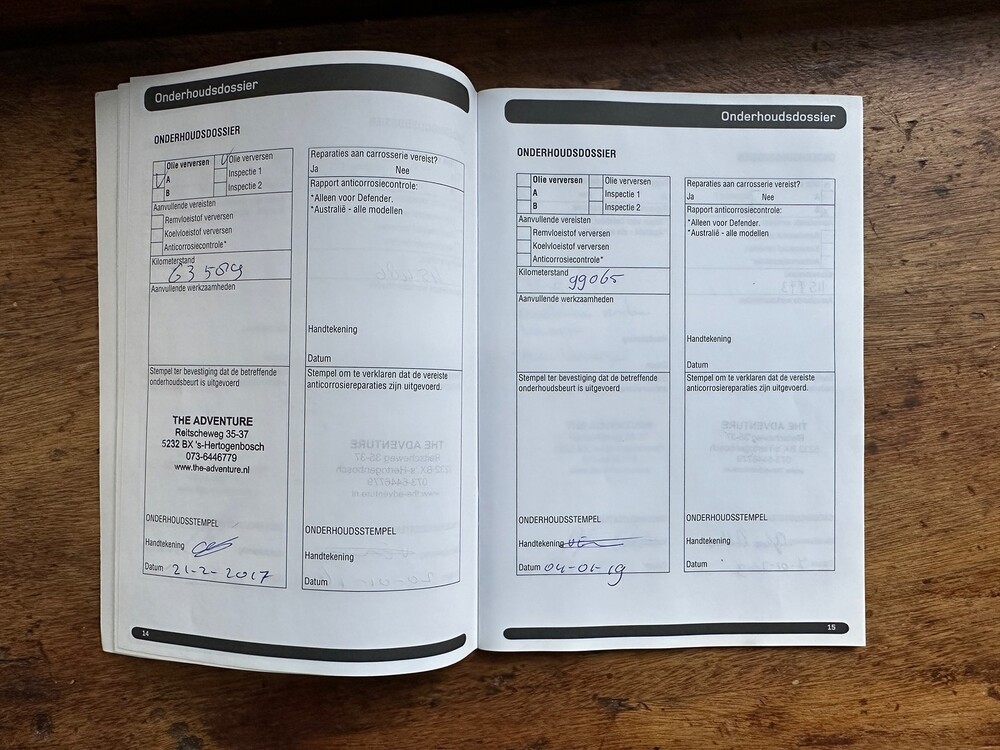 Onderhoudsdossier
ONDERHOUDSDOSSIER
Olie verversen
A
B
Olie verversen
Inspectie 1
Inspectie 2
Aanvullende vereisten
Remvloeistof verversen
Koelvloeistof verversen
Anticorrosiecontrole*
Kilometerstand
63589
Aanvullende werkzaamheden
Stempel ter bevestiging dat de betreffende
onderhoudsbeurt is uitgevoerd
THE ADVENTURE
Reitscheweg 35-37
5232 BX 's-Hertogenbosch
073-6446779
www.the-adventure.nl
ONDERHOUDSSTEMPEL
Handtekening
Datum 21-2-2017
Reparaties aan carrosserie vereist?
Ja Nee
Rapport anticorrosiecontrole:
*Alleen voor Defender.
*Australië - alle modellen
Handtekening
Datum
Stempel om te verklaren dat de vereiste
anticorrosiereparaties zijn uitgevoerd.
ONDERHOUDSSTEMPEL
Handtekening
Datum
14
Onderhoudsdossier
ONDERHOUDSDOSSIER
Olie verversen
A
B
Olie verversen
Inspectie 1
Inspectie 2
Aanvullende vereisten
Remvloeistof verversen
Koelvloeistof verversen
Anticorrosiecontrole*
Kilometerstand
99065
Aanvullende werkzaamheden
Stempel ter bevestiging dat de betreffende
onderhoudsbeurt is uitgevoerd
ONDERHOUDSSTEMPEL
Handtekening
Datum 04-01-19
Reparaties aan carrosserie vereist?
Ja Nee
Rapport anticorrosiecontrole:
*Alleen voor Defender.
*Australië - alle modellen
Handtekening
Datum
Stempel om te verklaren dat de vereiste
anticorrosiereparaties zijn uitgevoerd.
ONDERHOUDSSTEMPEL
Handtekening
Datum
15